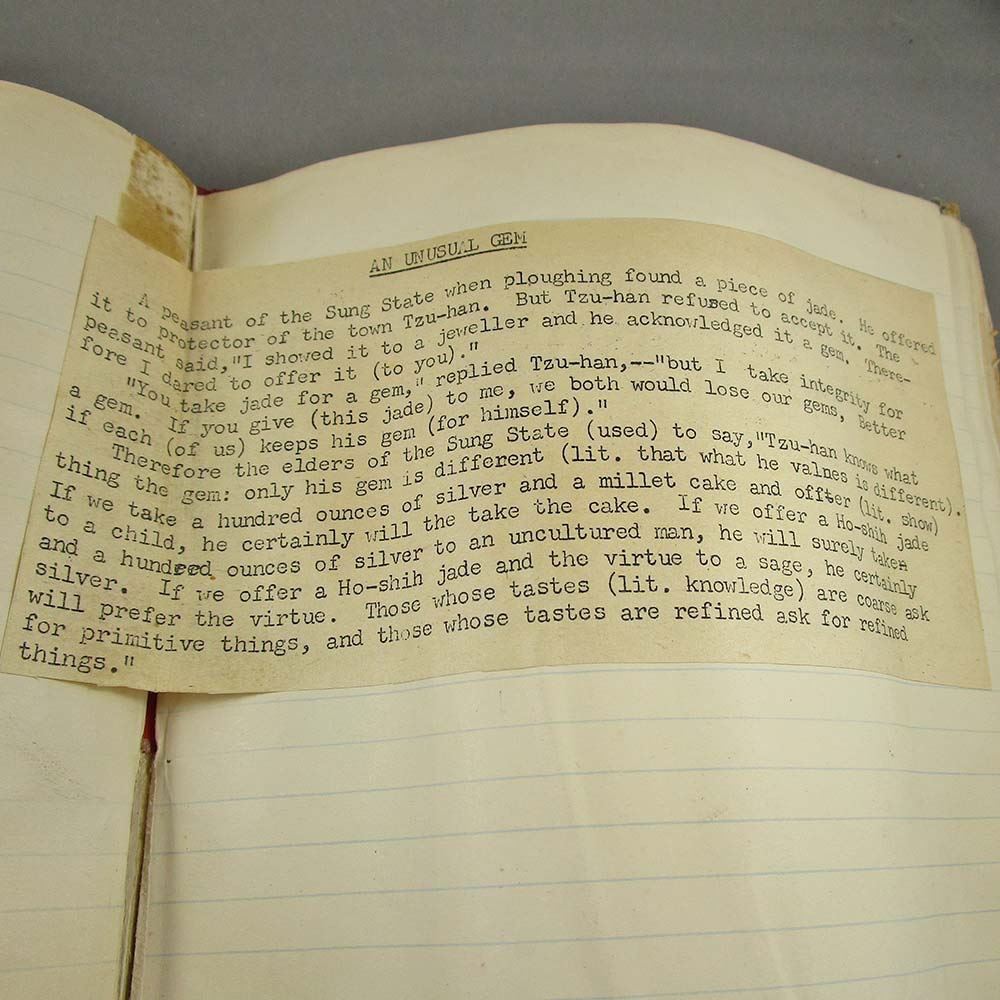 AN UNUSUAL GEM
A peasant of the Sung State when ploughing found a piece of jade. He offered
it to protector of the town Tzu-han. But Tzu-han refused to accept it. The
peasant said,"I showed it to a jeweller and he acknowledged it a gem. There-
fore I dared to offer it (to you)."
"You take jade for a gem," replied Tzu-han,--"but I take integrity for
a gem. If you give (this jade) to me, we both would lose our gems, Better
if each (of us) keeps his gem (for himself)."
Therefore the elders of the Sung State (used) to say,"Tzu-han knows what
thing the gem: only his gem is different (lit. that what he valnes is different).
If we take a hundred ounces of silver and a millet cake and offter (lit. show)
to a child, he certainly will the take the cake. If we offer a Ho-shih jade
and a hundred ounces of silver to an uncultured man, he will surely taken
silver. If we offer a Ho-shih jade and the virtue to a sage, he certainly
will prefer the virtue. Those whose tastes (lit. knowledge) are coarse ask
for primitive things, and those whose tastes are refined ask for refined
things."